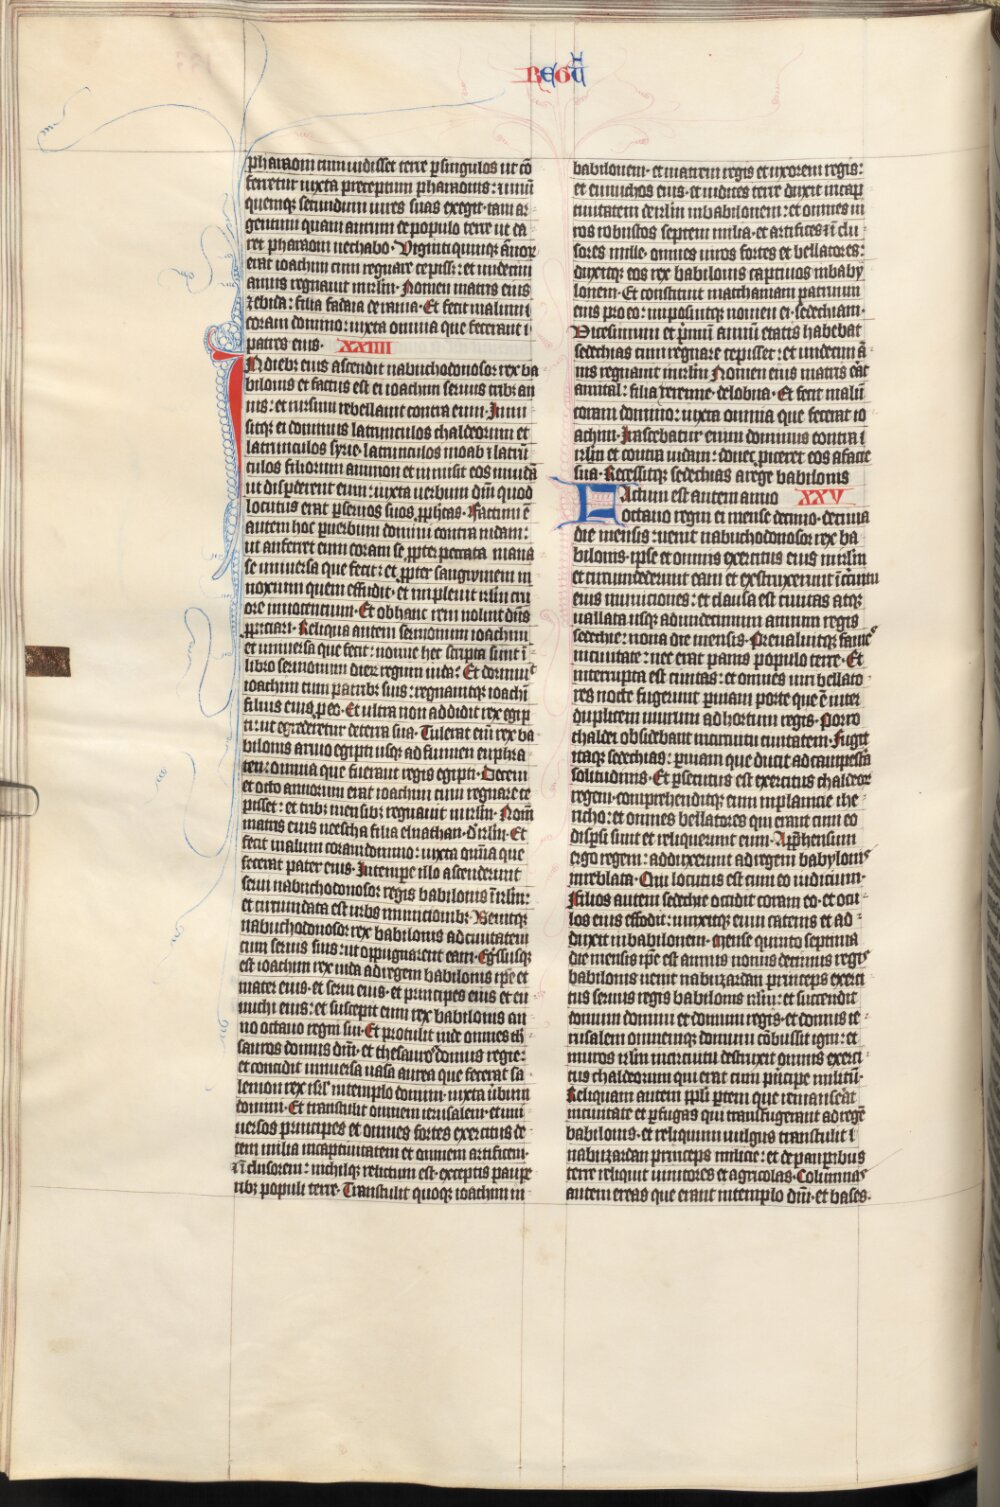 REGŪ
pharaoni cum indixisset terre ꝑ singulos ut cō
ferretur iuxta preceptum pharaonis: ⁊ unū
quemq; secundum uires suas exegit· tam ar
gentum quam aurum de populo terre ut da
ret pharaoni nechabo· Viginti quinq; annoꝝ
erat ioachim cum regnare cepiss;: et undecim
annis regnauit in irl̄m· Nomen matris eius
zebida: filia fadaia de rama· Et fecit malum
coram domino: iuxta omnia que fecerant
patres eius· XXIIII
In diebꝫ eius ascendit nabuchodonosor rex ba
bilonis et factus est ei ioachim seruus tribꝫ an
nis: et rursum rebellauit contra eum· Inmi
sitq; ei dominus latrunculos chaldeorum et
latrunculos syrie· latrunculos moab ⁊ latrū
culos filiorum ammon et inmisit eos in iudā
ut disꝑderent eum: iuxta uerbum dn̄i quod
locutus erat ꝑ seruos suos ꝓphetas· Factum ē
autem hoc ꝑ uerbum domini contra iudam:
ut auferret eum coram se ꝓpter peccata mana
se uniuersa que fecit: et ꝓpter sanguinem in
noxium quem effudit· et impleuit irl̄m cru
ore innocentium· Et ob hanc rem noluit dn̄s
ꝓpiciari· Reliqua autem sermonum ioachim
et uniuersa que fecit: nonne hec scripta sunt ī
libro sermonum dierꝝ regum iuda: Et dormiuit
ioachim cum patribꝫ suis: regnauitq; ioachī
filius eius ꝓ eo· Et ultra non addidit rex egip
ti: ut egrederetur de terra sua· Tulerat eī rex ba
bilonis a riuo egipti usq; ad flumen euphra
ten: omnia que fuerant regis egipti· Decem
et octo annorum erat ioachim cum regnare ce
pisset: et tribꝫ mensibꝫ regnauit in irl̄m· Nom̄
matris eius neescha filia elnathan· d' irl̄m· Et
fecit malum coram domino: iuxta om̄ia que
fecerat pater eius· In tempe illo ascenderunt
serui nabuchodonosor regis babilonis ī irl̄m:
et circumdata est urbs municionibꝫ· Venitq;
nabuchodonosor rex babilonis ad ciuitatem
cum seruis suis: ut oppugnarent eam· Egr̄ssusq;
est ioachim rex iuda ad regem babilonis ip̄e et
mater eius· et serui eius· et principes eius et eu
nuchi eius: et suscepit eum rex babilonis an
no octauo regni sui· Et protulit inde omnes th
sauros domus dn̄i· et thesauros domus regie:
et concidit uniuersa uasa aurea que fecerat sa
lemon rex isrl̄ in templo domini· iuxta ūbum
domini· Et transtulit omnem ierusalem· et uni
uersos principes et omnes fortes exercitus de
cem milia in captiuitatem et omnem artificem
⁊ clusorem: nichilq; relictum est· exceptis paupe
ribꝫ populi terre· Transtulit quoq; ioachim in
babilonem· et matrem regis et uxorem regis:
et eunuchos eius· et iudices terre duxit in cap
tiuitatem de irl̄m in babilonem: et omnes ui
ros robustos septem milia· et artifices ⁊ clu
sores mille· omnes uiros fortes et bellatores:
duxitq; eos rex babilonis captiuos in baby
lonem· Et constituit matthaniam patruum
eius pro eo: inposuitq; nomen ei· sedechiam·
Vicesimum et primū annū etatis habebat
sedechias cum regnare cepisset: et undecim ā
nis regnauit in irl̄m Nomen eius matris erat
amital: filia ieremie· de lobna· Et fecit malū
coram domino: iuxta omnia que fecerat io
achim· Irascebatur enim dominus contra ī
irl̄m et contra iudam: donec ꝓiceret eos a facie
sua· Recessitq; sedechias a rege babilonis
Factum est autem anno XXV
octauo regni ei mense decimo· decima
die mensis: uenit nabuchodonosor rex ba
bilonis· ipse et omnis exercitus eius in irl̄m
et circumdederunt eam et exstruxerunt ī circuitu
eius municiones: et clausa est ciuitas atq;
uallata usq; ad undecimum annum regis
sedechie: nona die mensis· Preualuitq; fames
in ciuitate: nec erat panis populo terre· Et
interrupta est ciuitas: et omnes uiri bellato
res nocte fugerunt ꝑ uiam porte que ē inter
duplicem murum ad hortum regis· Porro
chaldei obsidebant in circuitu ciuitatem· Fugit
itaq; sedechias: ꝑ uiam que ducit ad campestia
solitudinis· Et ꝑsecutus est exercitus chaldeoꝝ
regem· comprehenditq; eum in planicie ihe
richo: et omnes bellatores qui erant cum eo
disꝑsi sunt et reliquerunt eum· Appr̄hensum
ergo regem: adduxerunt ad regem babylonis
in reblata· Qui locutus est cum eo iudicium·
Filios autem sedechie occidit coram eo· et ocu
los eius effodit: uinxitq; eum catenis et ad
duxit in babilonem· Mense quinto septima
die mensis ip̄e est annus nonus decimus regis
babilonis uenit nabuzardan princeps exerci
tus seruus regis babilonis irl̄m: et succendit
domum domini et domum regis· et domus ie
rusalem omnemq; domum cōbussit igni: et
muros irl̄m in circuitu destruxit omnis exerci
tus chaldeorum qui erat cum pricipe militū·
Reliquam autem pp̄li ꝑtem que remanserat
in ciuitate et ꝑfugas qui transfugerant ad regē
babilonis· et reliquum uulgus transtulit
nabuzardan princeps milicie: et de pauꝑibus
terre reliquit uinitores et agricolas· Columnas
autem ereas que erant in templo dn̄i· et bases·